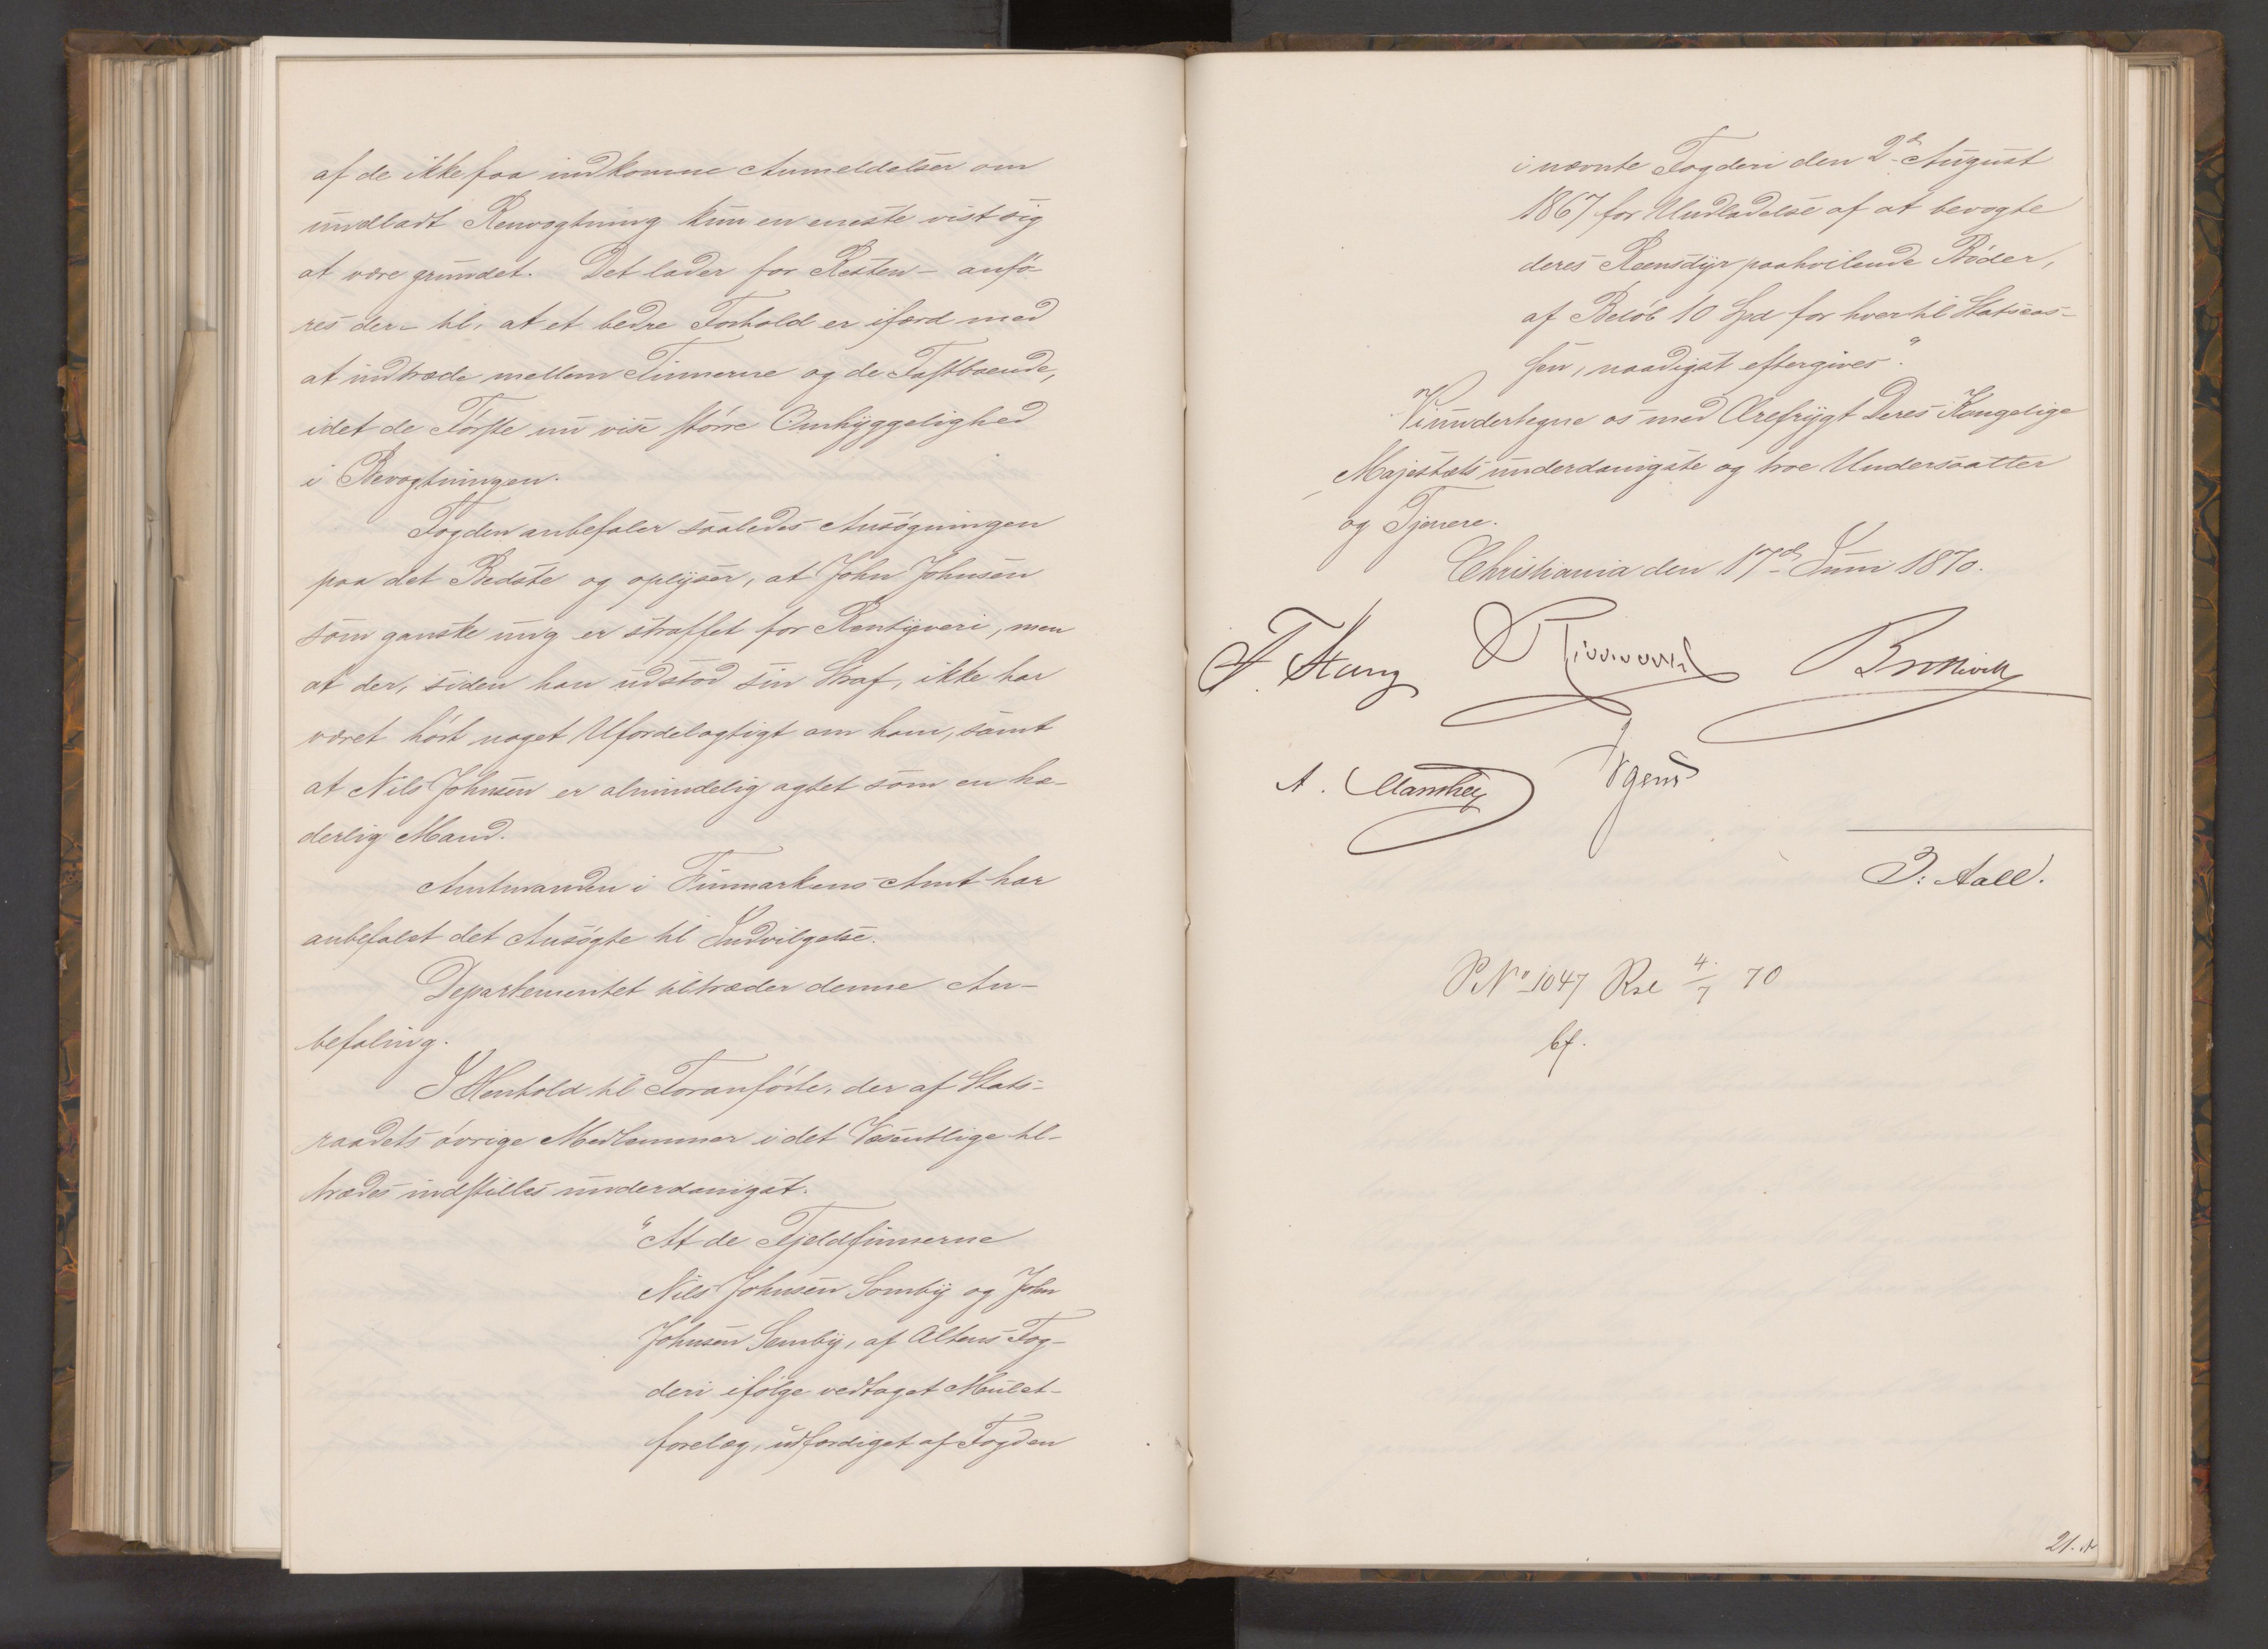 af de ikke faa indkomne Anmeldelser om
undladt Renvogtning kun en eneste vist sig
at være grundet. Det lader for Resten - anfø-
res der - til, at et bedre Forhold er ifærd med
at indtræde mellem Finnerne og de Fastboende,
idet de Første nu vise større Omhyggelighed
i Bevogtningen.
Fogden anbefaler saaledes Ansøgningen
paa det Bedste og oplyser, at John Johnsen
som ganske ung er straffet for Rentyveri, men
at der, siden han udstod sin Straf, ikke har
været hørt noget Ufordelagtigt om ham, samt
at Nils Johnsen er almindelig agtet som en hæ-
derlig Mand.
Amtmanden i Finmarkens Amt har
anbefalet det Ansøgte til Indvilgelse.
Departementet tiltræder denne An-
befaling.
I Henhold til Foranførte, der af Stats-
raadets øvrige Medlemmer i det Væsentlige til-
trædes indstilles underdanigst:
"At de Fjeldfinnerne
Nils Johnsen Somby og John
Johnsen Somby, af Altens Fog-
deri ifølge vedtaget Mulct-
forelæg, udfærdiget af Fogden
i nævnte Fogderi den 2den August
1867 for Undladelse af at bevogte
deres Reensdyr paahvilende Bøder,
af Beløb 10 Spd for hver til Statscas-
sen, naadigst eftergives".
Vi undertegne os med Ærefrygt Deres Kongelige
Majestæts underdanigste og troe Undersaatter
og Tjenere.
Christiania den 17de Juni 1870.
F. Stang
A. Manthey Irgens
J. Aall.
P N° 1047 Rsl 4/7 70
bf.